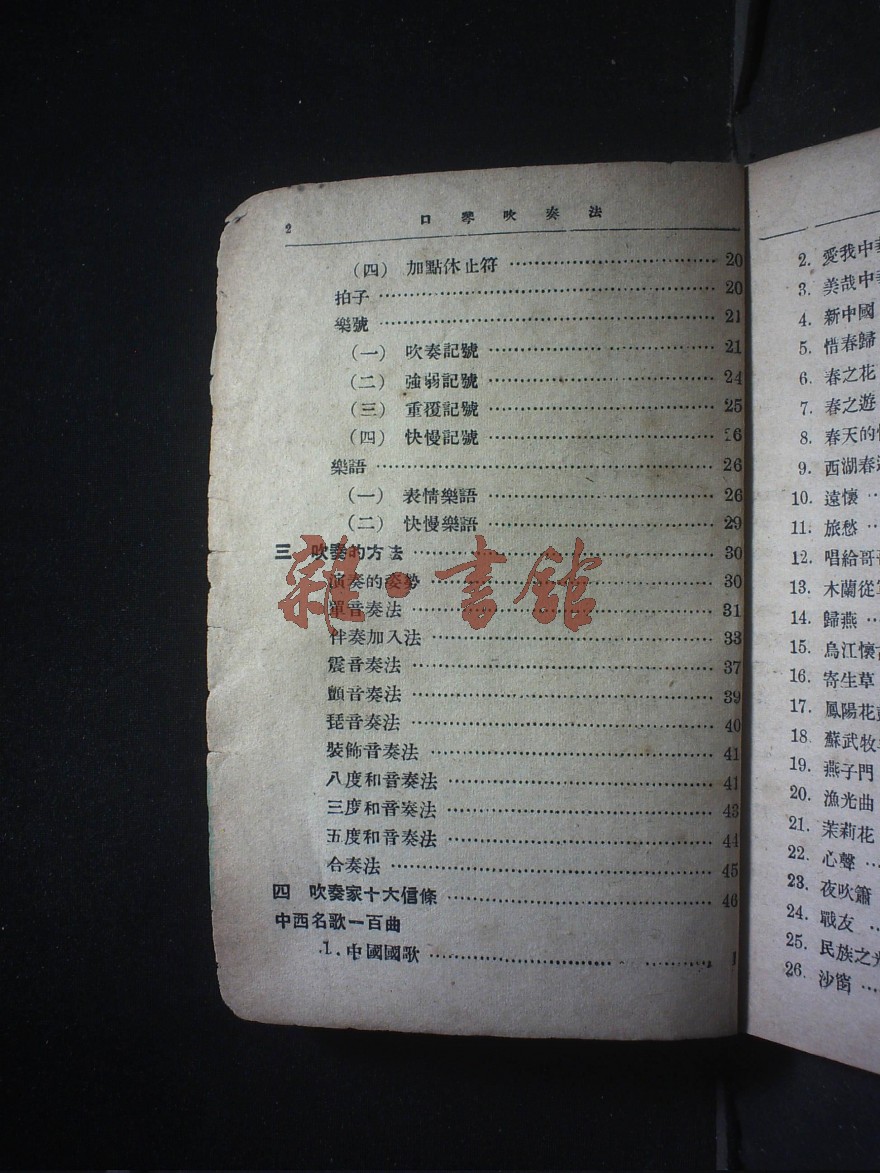 2 口琴吹奏法
(四) 加點休止符 20
拍子 20
樂號 21
(一) 吹奏記號 21
(二) 強弱記號 24
(三) 重覆記號 25
(四) 快慢記號 26
樂語 26
(一) 表情樂語 26
(二) 快慢樂語 29
三 吹奏的方法 30
演奏的姿勢 30
單音奏法 31
伴奏加入法 33
震音奏法 37
顫音奏法 39
琵音奏法 40
裝飾音奏法 41
八度和音奏法 41
三度和音奏法 43
五度和音奏法 44
合奏法 45
四 吹奏家十大信條 46
中西名歌一百曲
1. 中國國歌 1
雜·書館
2. 愛我中
3. 美哉中
4. 新中國
5. 惜春歸
6. 春之花
7. 春之遊
8. 春天的
9. 西湖春
10. 遠懷
11. 旅愁
12. 唱給哥
13. 木蘭從
14. 歸燕
15. 烏江懷
16. 寄生草
17. 鳳陽花
18. 蘇武牧
19. 燕子門
20. 漁光曲
21. 茉莉花
22. 心聲
23. 夜吹簫
24. 戰友
25. 民族之
26. 沙